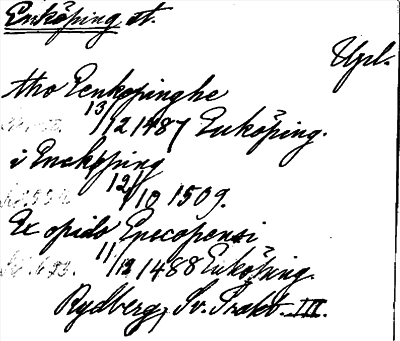 Enköping st.
Upl.
tho Eenkopinghe
13/12 1487 Enköping.
i Eneköping
12/10 1509.
Ex opido Enecopensi
11/12 1488 Enköping.
Rydberg, Sv. Trakt. III.